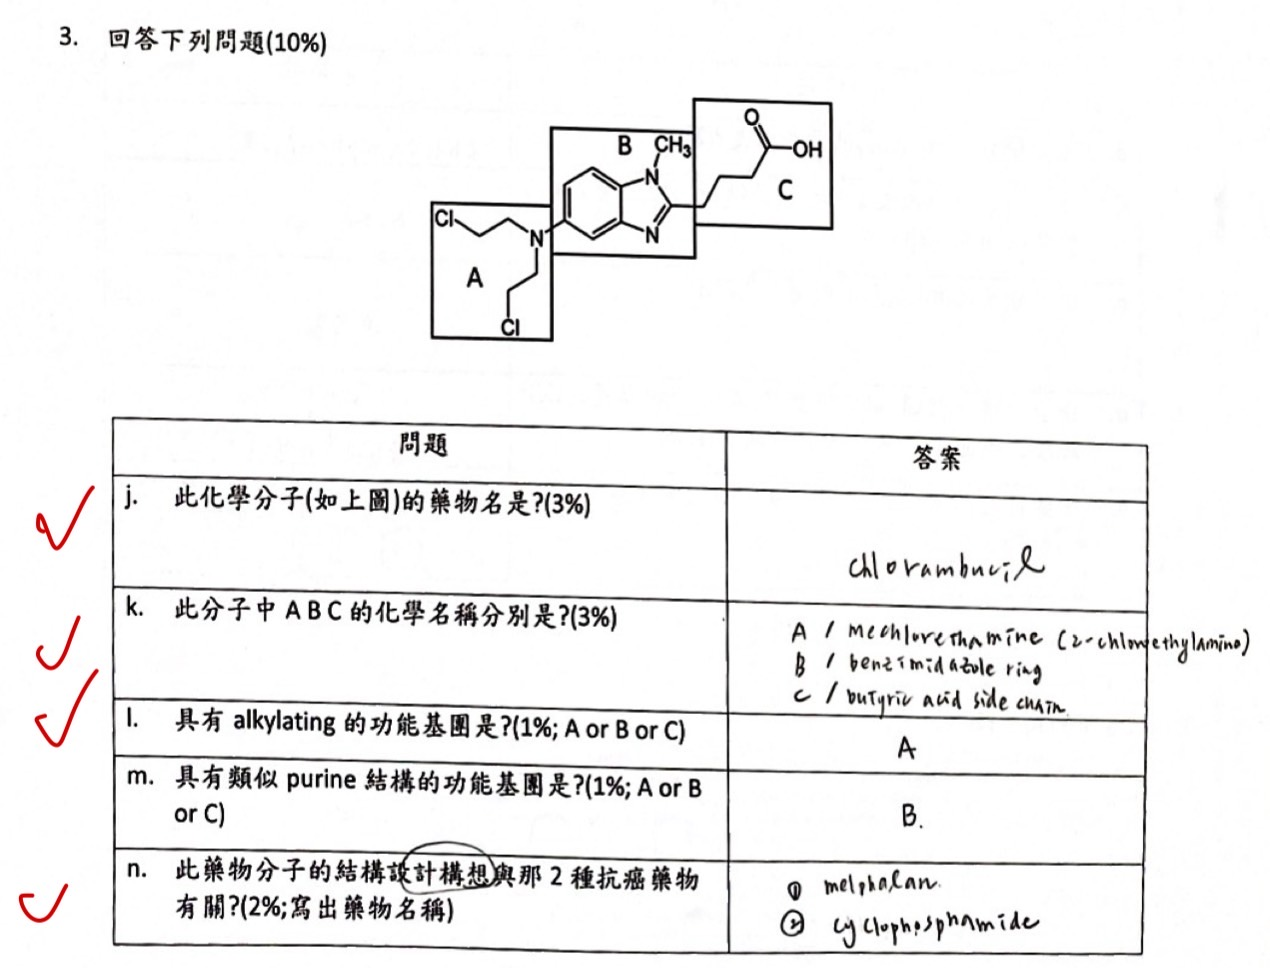 3. 回答下列問題(10%)
B
CH3
O
OH
N
C
Cl
N
N
A
Cl
問題
答案
j. 此化學分子(如上圖)的藥物名是?(3%)
chlorambucil
k. 此分子中 A B C 的化學名稱分別是?(3%)
A / mechlorethamine (2-chloroethylamino)
B / benzimidazole ring
C / butyric acid side chain.
l. 具有 alkylating 的功能基團是?(1%; A or B or C)
A
m. 具有類似 purine 結構的功能基團是?(1%; A or B
or C)
B.
n. 此藥物分子的結構設計構想與那 2 種抗癌藥物
有關?(2%;寫出藥物名稱)
① melphalan.
② cyclophosphamide